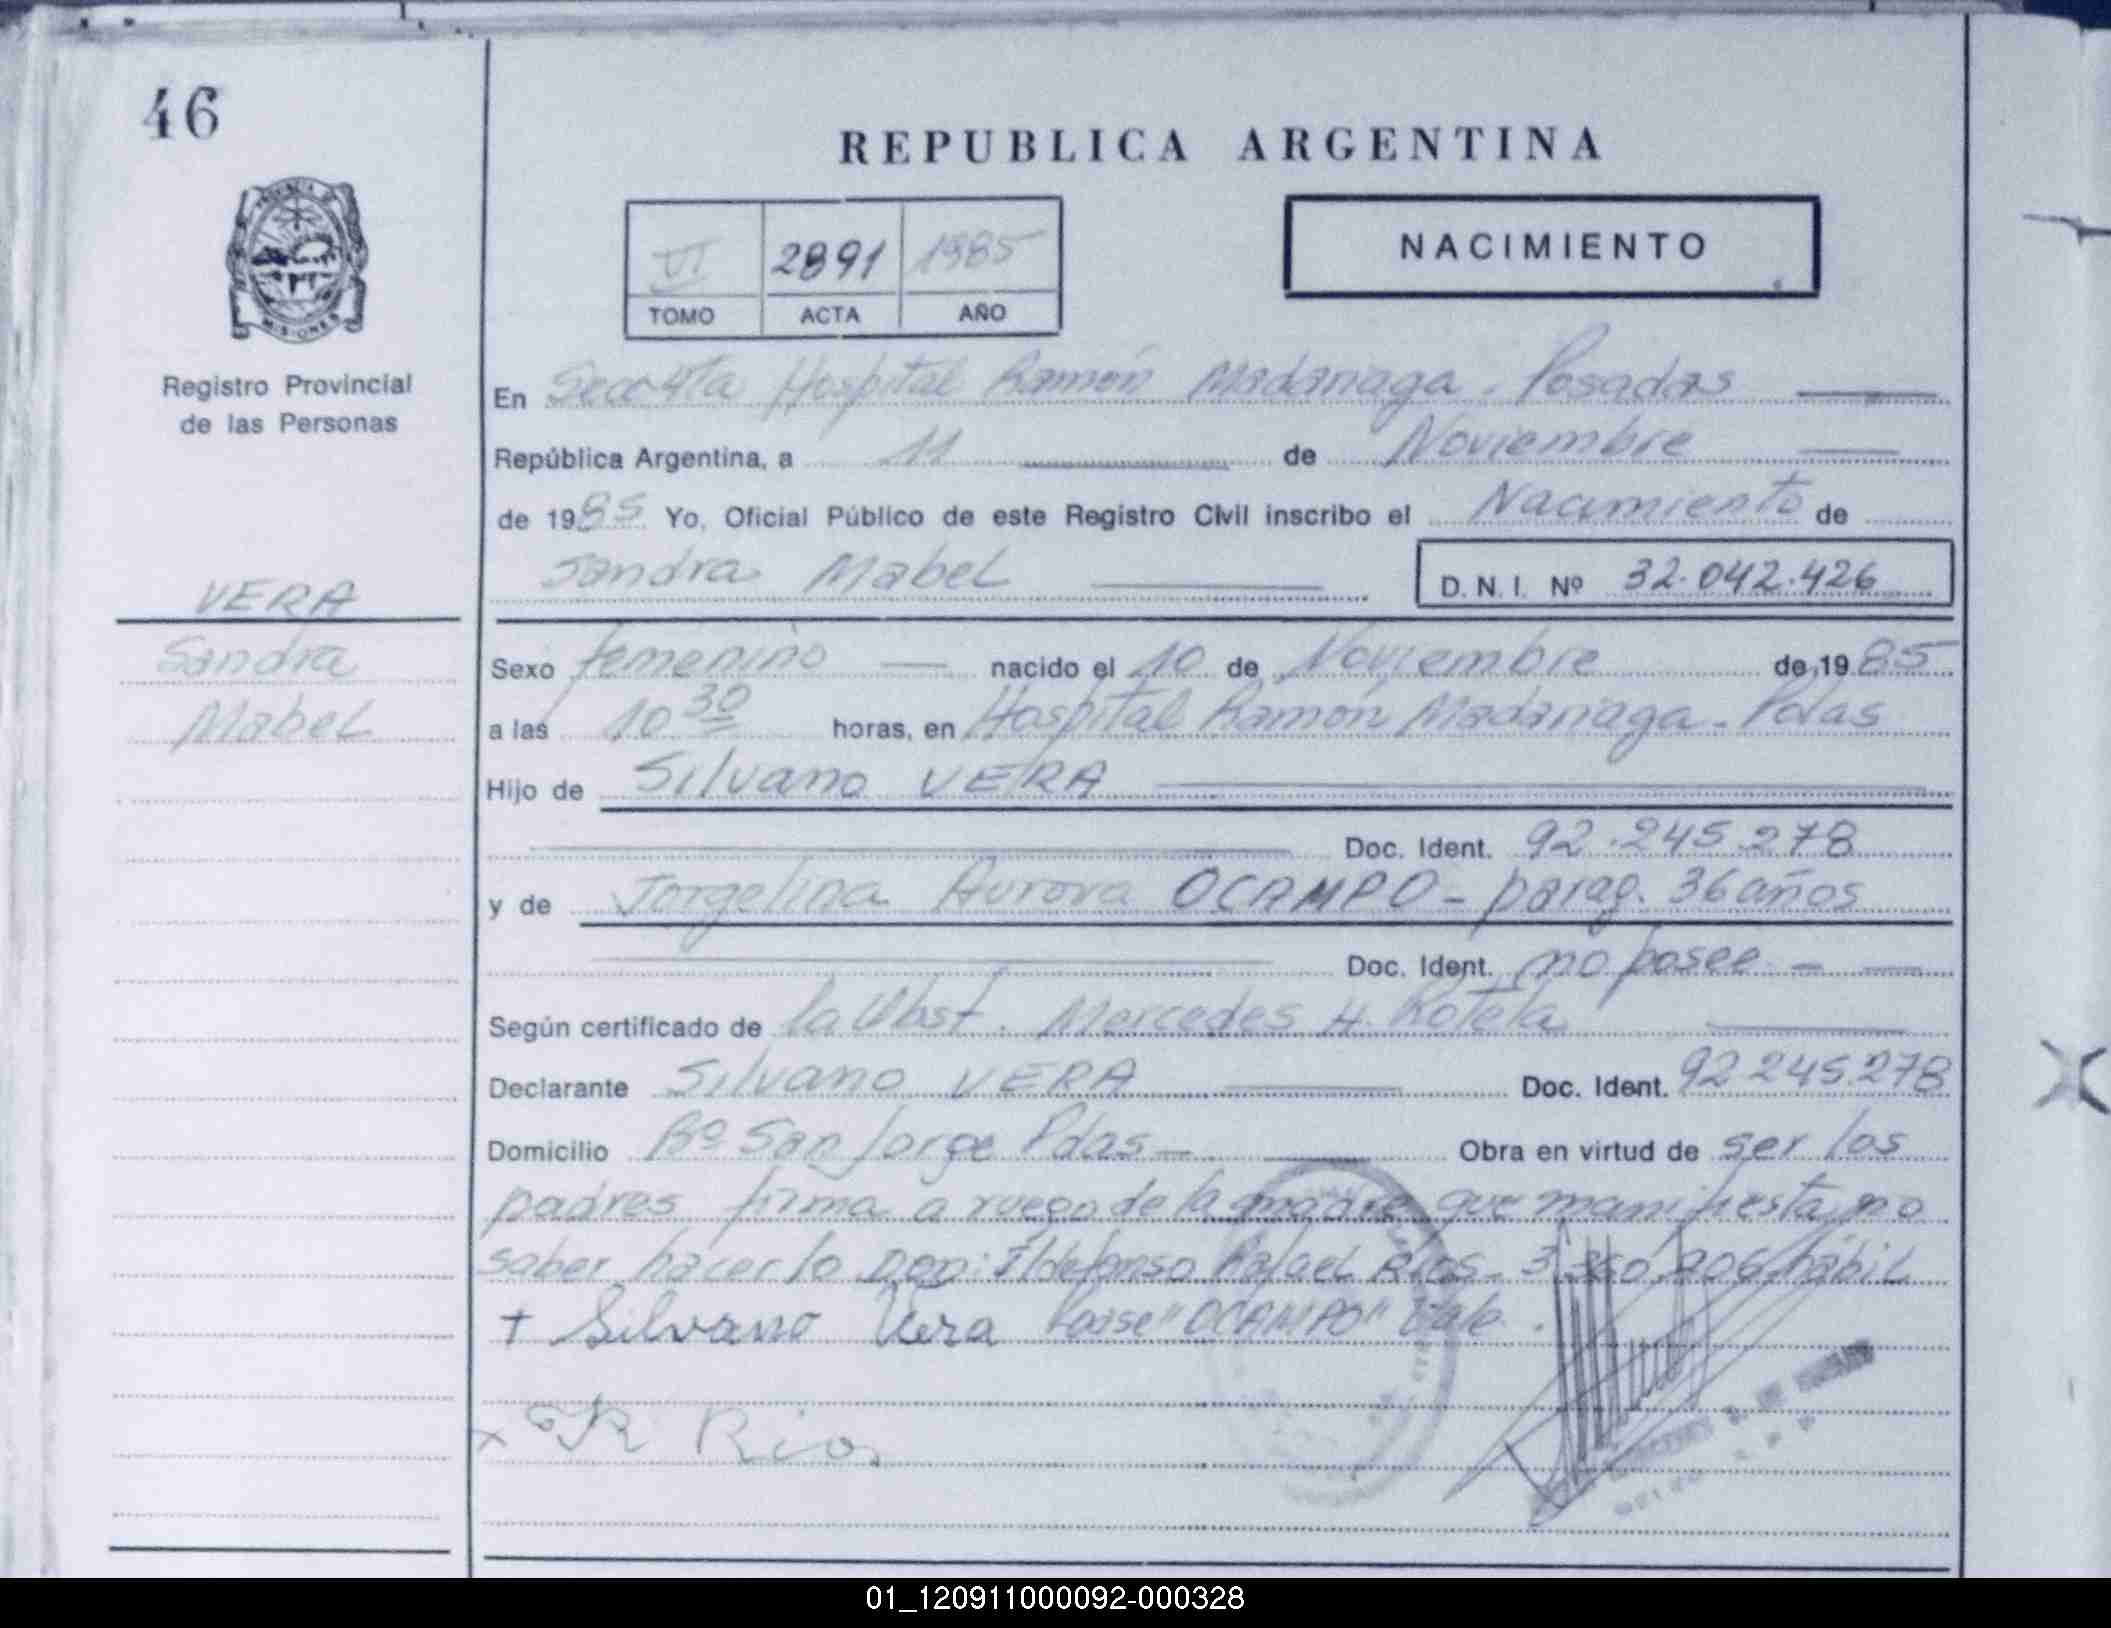 46
REPUBLICA ARGENTINA
NACIMIENTO
VI 2891 1985
TOMO ACTA AÑO
MISIONES
Registro Provincial
de las Personas
En Secc 4ta Hospital Ramón Madariaga - Posadas
República Argentina, a 11 de Noviembre
de 1985 Yo, Oficial Público de este Registro Civil inscribo el Nacimiento de
Sandra Mabel D. N. I. Nº 32.042.426
VERA
Sandra
Mabel
Sexo femenino nacido el 10 de Noviembre de 1985
a las 10 30 horas, en Hospital Ramón Madariaga - Pdas
Hijo de Silvano VERA
Doc. Ident. 92.245.278
y de Jorgelina Aurora OCAMPO - parag. 36 años
Doc. Ident. no posee -
Según certificado de la Obst. Mercedes H. Rotela
Declarante Silvano VERA Doc. Ident. 92 245.278
Domicilio Bº San Jorge Pdas - Obra en virtud de ser los
padres firma a ruego de la madre que manifiesta no
saber hacerlo Don: Ildefonso Rafael Rios - hábil
+ Silvano Vera "OCAMPO" Vale.
x R Rios
01_120911000092-000328